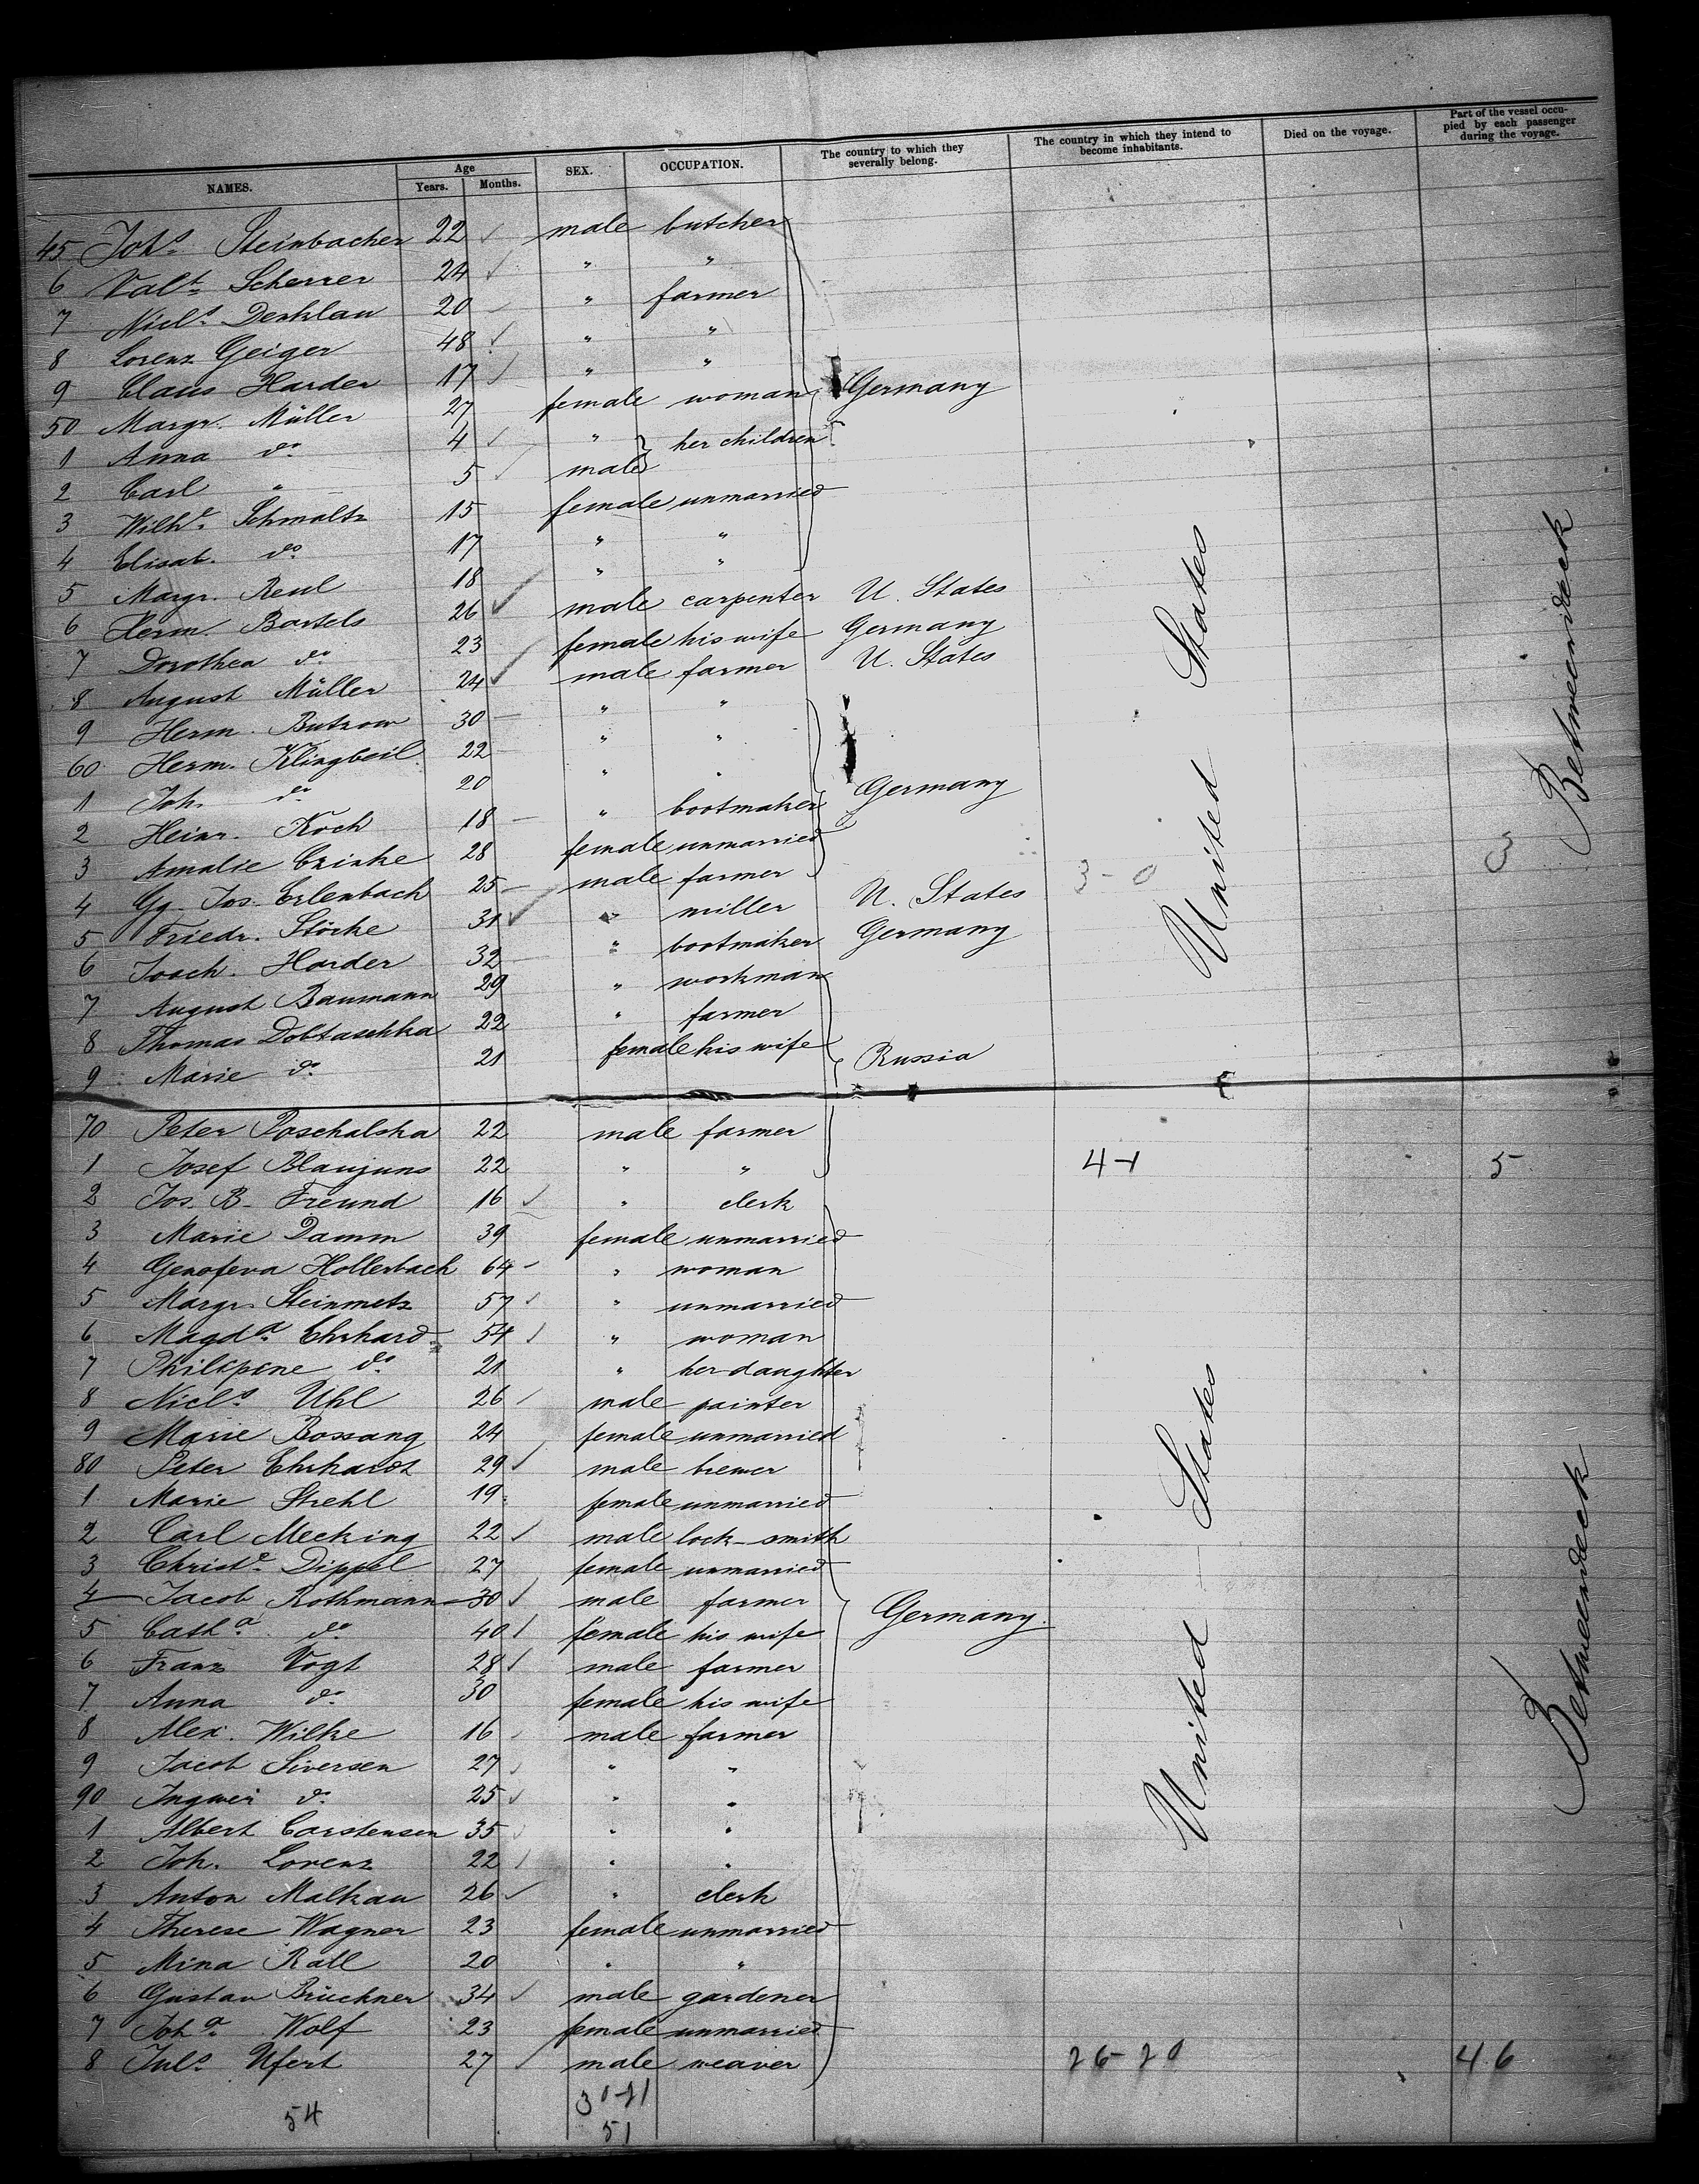 NAMES. Age Years. Months. SEX. OCCUPATION. The country to which they severally belong. The country in which they intend to become inhabitants. Died on the voyage. Part of the vessel occupied by each passenger during the voyage.
45 Johs. Steinbacher 22 ✓ male butcher
6 Valt. Scherrer 24 ✓ " "
7 Nicls. Derklau 20 – " farmer
8 Lorenz Geiger 48 ✓ " "
9 Claus Harder 17 ✓ " "
50 Margr. Müller 27 female woman Germany
1 Anna do 4 ✓ " } her children
2 Carl " 5 ✓ male
3 Wilhe. Schmaltz 15 female unmarried
4 Elisab. do 17 " "
5 Margr. Reul 18 " "
6 Herm. Bartels 26 ✓ male carpenter U. States
7 Dorothea do 23 female his wife Germany
8 August Müller 24 ✓ male farmer U. States
9 Herm. Butzow 30 – " "
60 Herm. Klingbeil 22 – " "
1 Joh. do 20 " " Germany
2 Heinr. Koch 18 – " bootmaker
3 Amalie Crinke 28 female unmarried
4 Gg. Jos. Erlenbach 25 – male farmer
5 Friedr. Störke 31 ✓ " miller U. States 3-0 3
6 Joach. Harder 32 – " bootmaker Germany
7 August Baumann 29 " workman
8 Thomas Dobtaschka 22 " farmer
9 Marie do 21 female his wife Russia
United States
Betweendeck
70 Peter Poschalska 22 male farmer
1 Josef Blaujuns 22 " " 4-1 5
2 Jos. B. Freund 16 ✓ " clerk
3 Marie Damm 39 female unmarried
4 Genofeva Hollerbach 64 – " woman
5 Margr. Steinmetz 57 ✓ " unmarried
6 Magda. Ehrhard 54 ✓ " woman
7 Philipine do 21 " her daughter
8 Nicls. Uhl 26 ✓ male painter
9 Marie Bossang 24 female unmarried
80 Peter Ehrhardt 29 ✓ male brewer
1 Marie Strehl 19 female unmarried
2 Carl Mecking 22 ✓ male lock-smith
3 Christe. Dippel 27 female unmarried
4 Jacob Rothmann 30 ✓ male farmer
5 Catha. do 40 ✓ female his wife Germany.
6 Franz Vogt 28 ✓ male farmer
7 Anna do 30 female his wife
8 Alex. Wilke 16 ✓ male farmer
9 Jacob Siversen 27 ✓ " "
90 Ingwer do 25 ✓ " "
1 Albert Carstensen 35 ✓ " "
2 Joh. Lorenz 22 ✓ " "
3 Anton Malkau 26 ✓ " clerk
4 Therese Wagner 23 female unmarried
5 Mina Rall 20 " "
6 Gustav Brückner 34 ✓ male gardener
7 Joha. Wolf 23 female unmarried
8 Juls. Ufert 27 ✓ male weaver 26-20 46
United States
Betweendeck
54 30-21
51